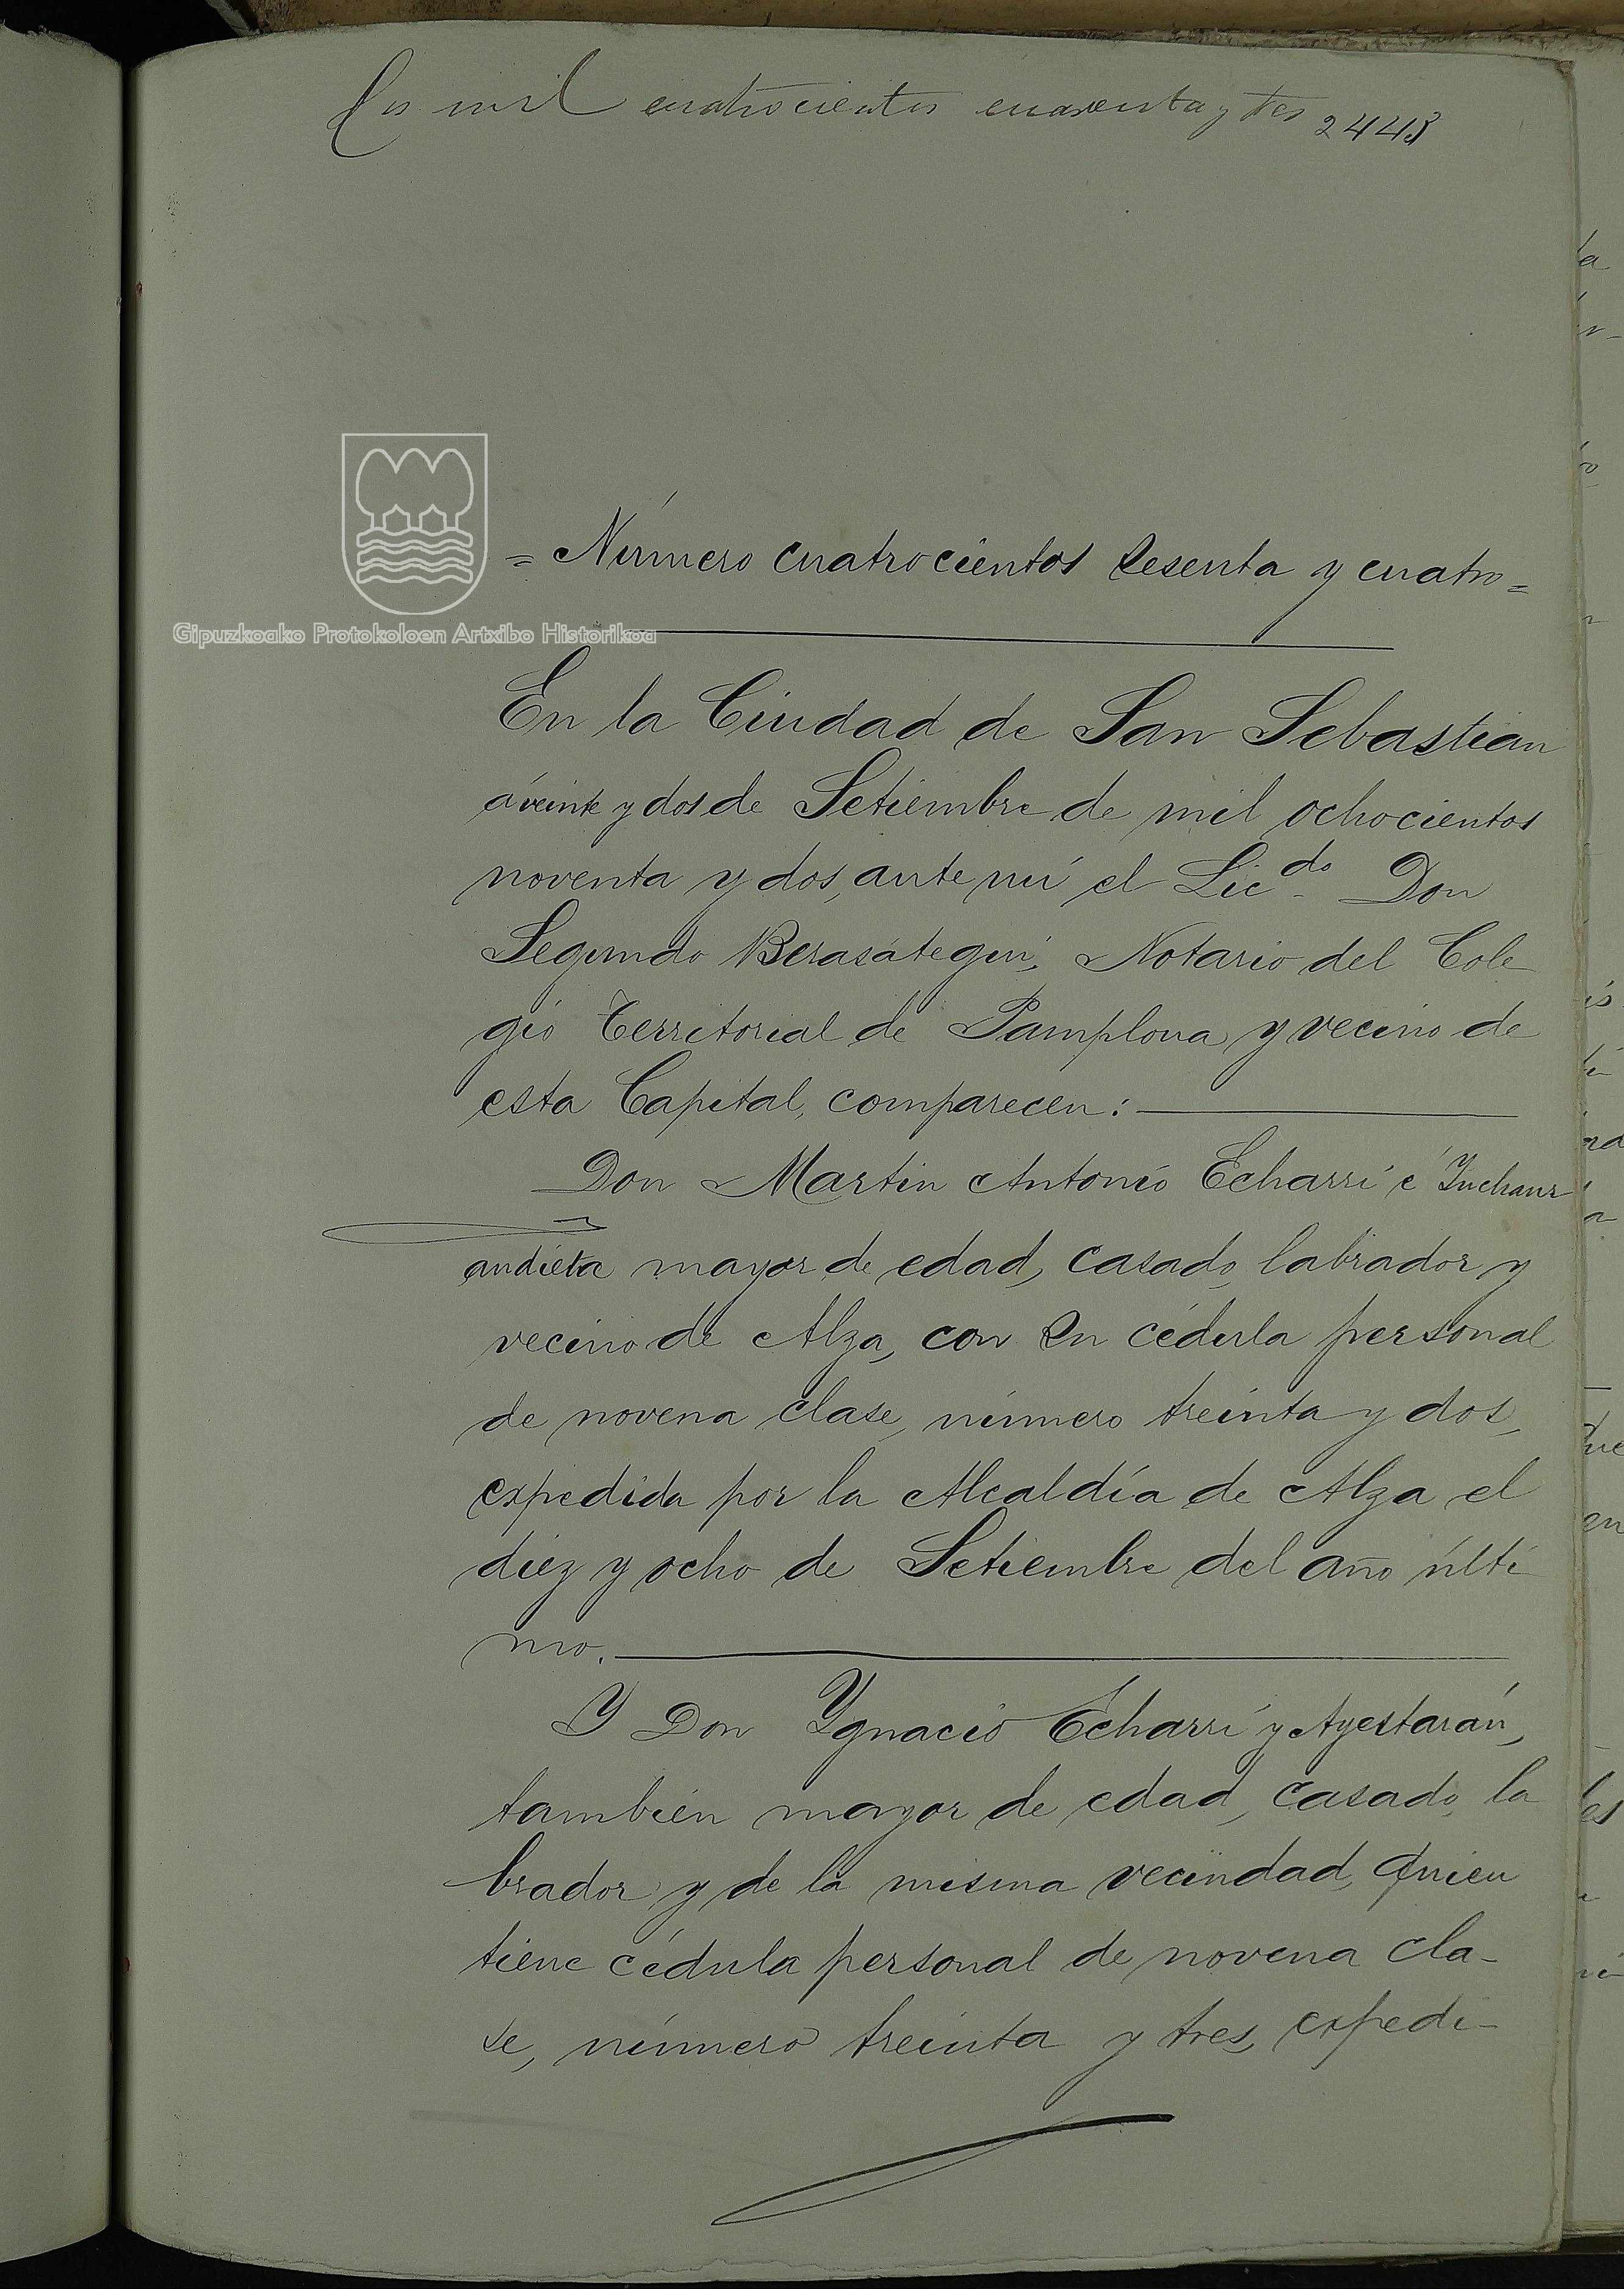 Dos mil cuatrocientos cuarenta y tres 2443
= Número cuatrocientos sesenta y cuatro =
Gipuzkoako Protokoloen Artxibo Historikoa
En la Ciudad de San Sebastian
á veinte y dos de Setiembre de mil ochocientos
noventa y dos, ante mí el Lic.do Don
Segundo Berasátegui, Notario del Cole
gio Territorial de Pamplona y vecino de
esta Capital, comparecen:
Don Martin Antonio Echarri é Inchaur
andieta mayor de edad, casado, labrador y
vecino de Alza, con su cédula personal
de novena clase, número treinta y dos,
expedida por la Alcaldía de Alza el
diez y ocho de Setiembre del año últi
mo.
Y Don Ygnacio Echarri y Ayestarán,
también mayor de edad, casado, la
brador y de la misma vecindad, quien
tiene cédula personal de novena cla-
se, número treinta y tres, expedi-